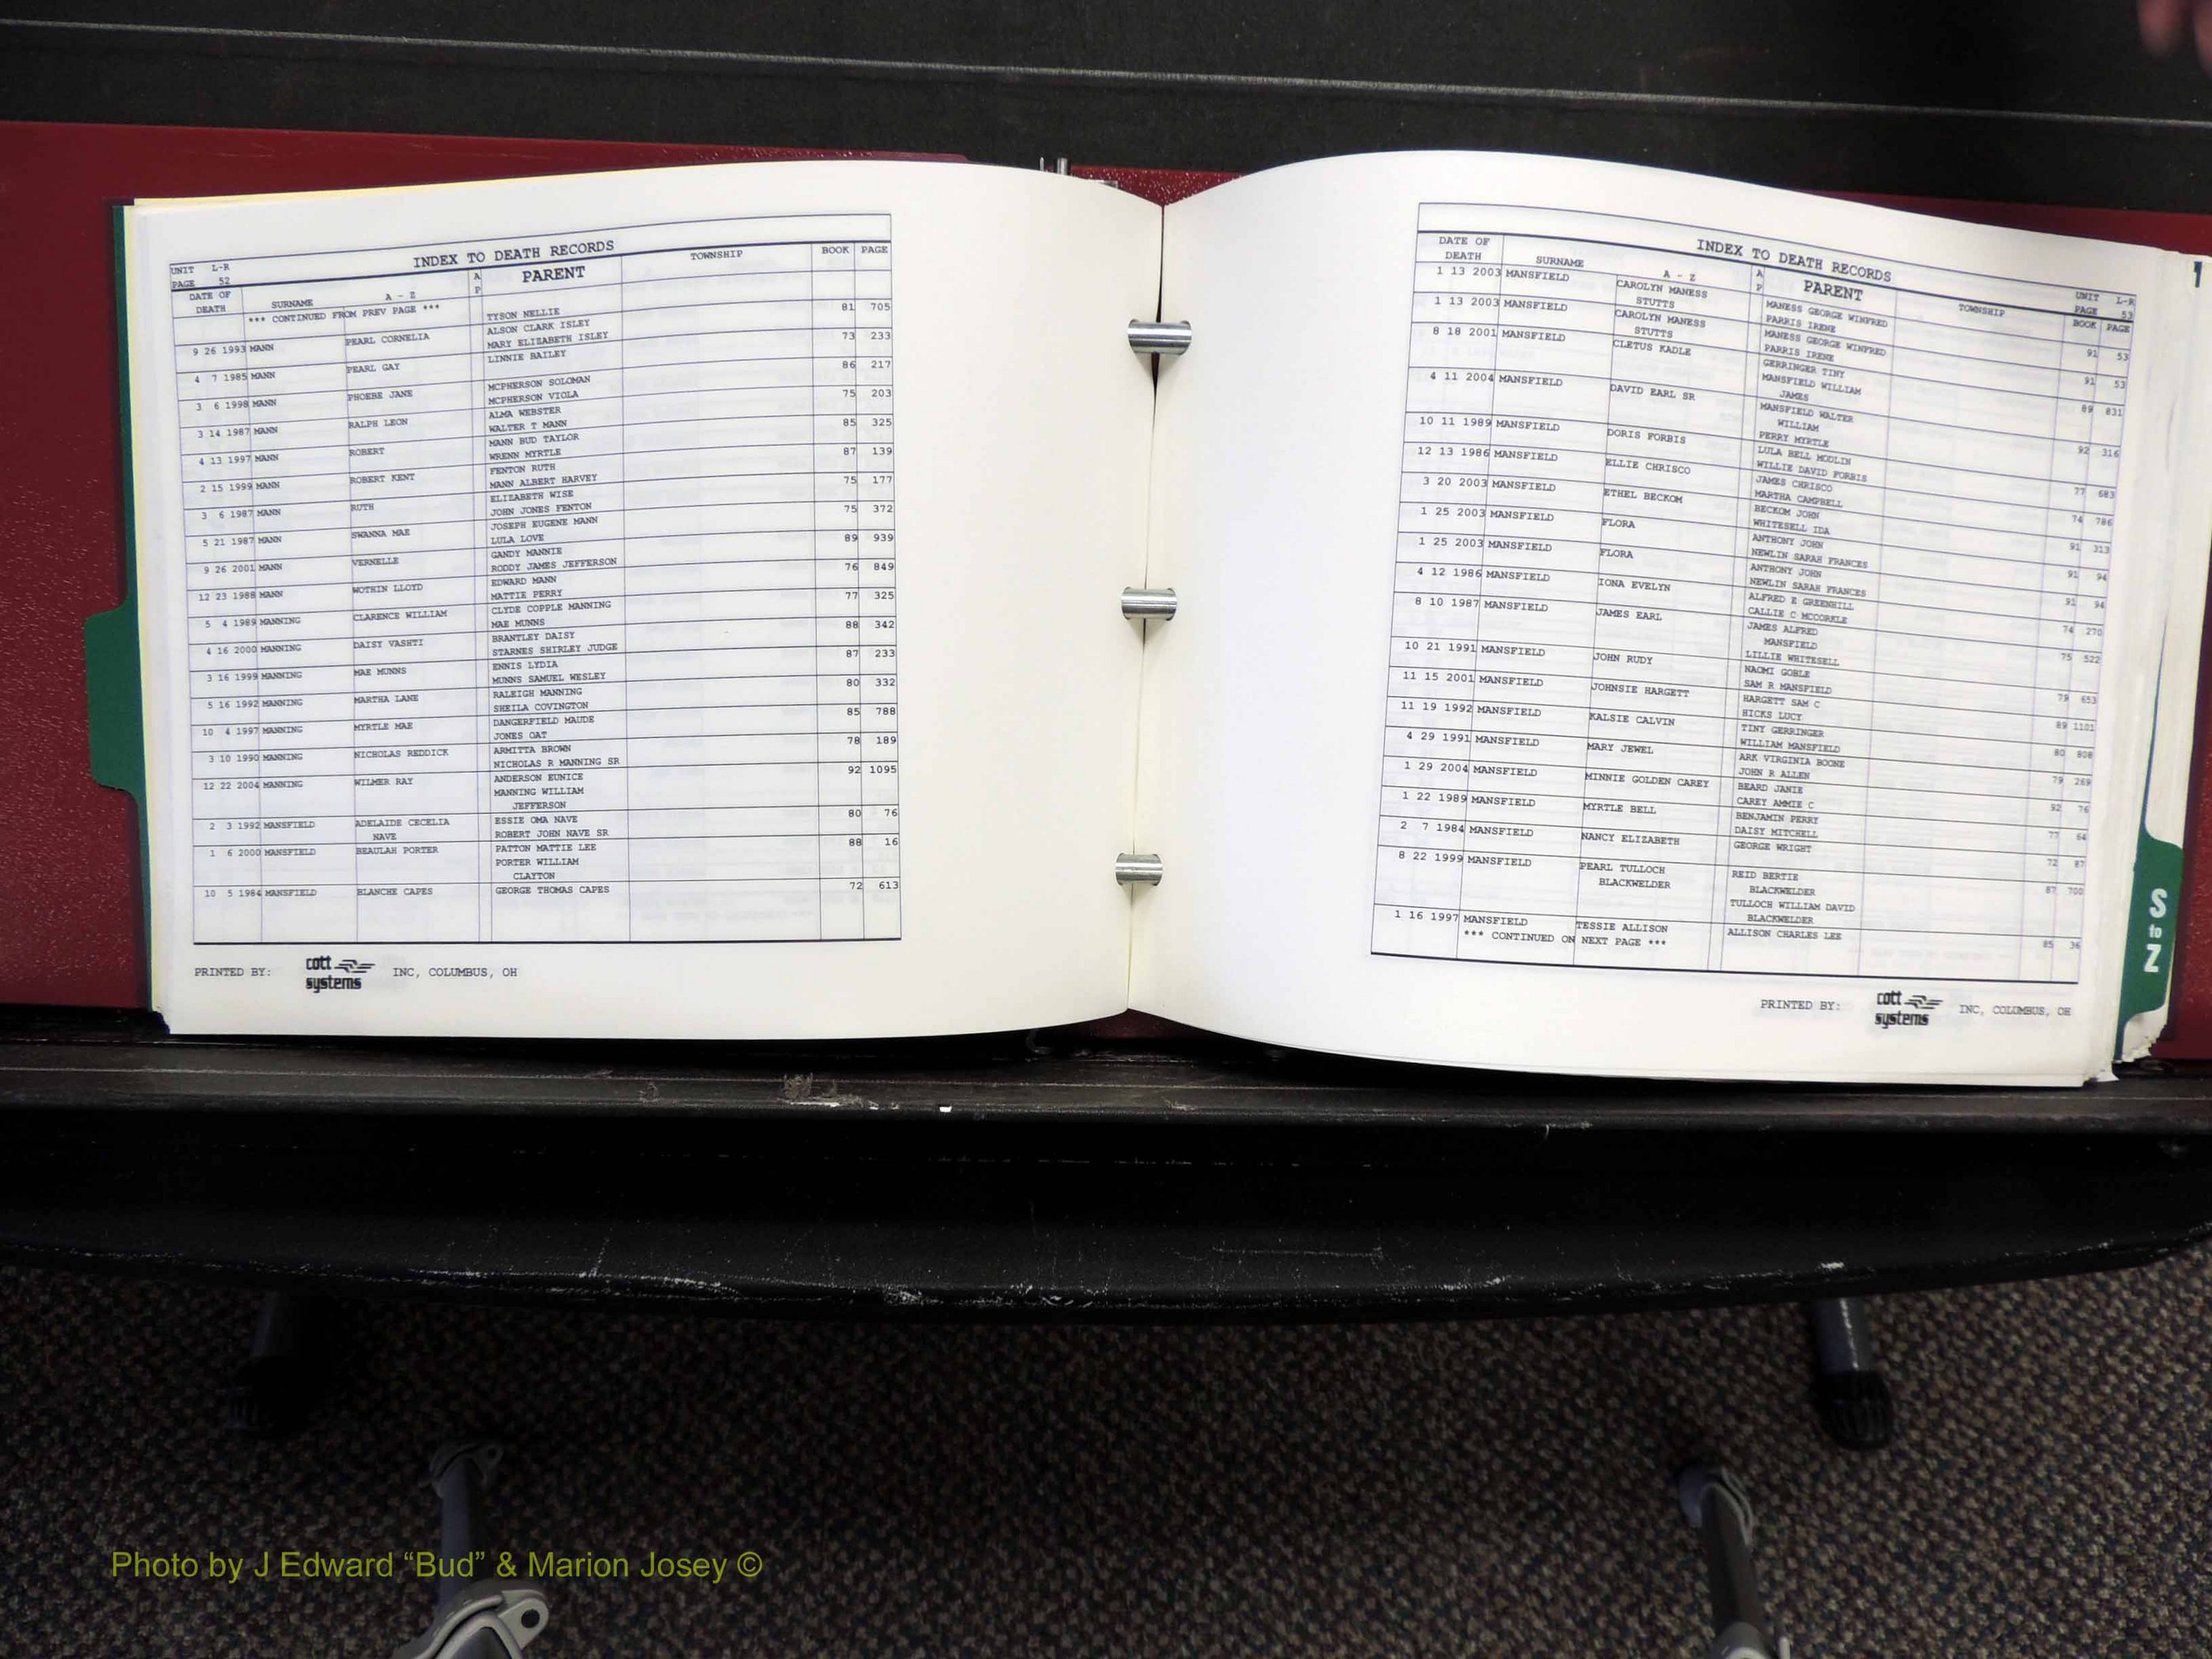 INDEX TO DEATH RECORDS
UNIT L-R
PAGE 52
DATE OF DEATH SURNAME A - Z A P PARENT TOWNSHIP BOOK PAGE
*** CONTINUED FROM PREV PAGE ***
TYSON NELLIE
9 26 1993 MANN PEARL CORNELIA ALSON CLARK ISLEY 81 705
MARY ELIZABETH ISLEY
4 7 1985 MANN PEARL GAY LINNIE BAILEY 73 233
3 6 1998 MANN PHOEBE JANE MCPHERSON SOLOMAN 86 217
MCPHERSON VIOLA
3 14 1987 MANN RALPH LEON ALMA WEBSTER 75 203
WALTER T MANN
4 13 1997 MANN ROBERT MANN BUD TAYLOR 85 325
WRENN MYRTLE
2 15 1999 MANN ROBERT KENT FENTON RUTH 87 139
MANN ALBERT HARVEY
3 6 1987 MANN RUTH ELIZABETH WISE 75 177
JOHN JONES FENTON
5 21 1987 MANN SWANNA MAE JOSEPH EUGENE MANN 75 372
LULA LOVE
9 26 2001 MANN VERNELLE GANDY MANNIE 89 939
RODDY JAMES JEFFERSON
12 23 1988 MANN WOTHIN LLOYD EDWARD MANN 76 849
MATTIE PERRY
5 4 1989 MANNING CLARENCE WILLIAM CLYDE COPPLE MANNING 77 325
MAE MUNNS
4 16 2000 MANNING DAISY VASHTI BRANTLEY DAISY 88 342
STARNES SHIRLEY JUDGE
3 16 1999 MANNING MAE MUNNS ENNIS LYDIA 87 233
MUNNS SAMUEL WESLEY
5 16 1992 MANNING MARTHA LANE RALEIGH MANNING 80 332
SHEILA COVINGTON
10 4 1997 MANNING MYRTLE MAE DANGERFIELD MAUDE 85 788
JONES OAT
3 10 1990 MANNING NICHOLAS REDDICK ARMITTA BROWN 78 189
NICHOLAS R MANNING SR
12 22 2004 MANNING WILMER RAY ANDERSON EUNICE 92 1095
MANNING WILLIAM
JEFFERSON
2 3 1992 MANSFIELD ADELAIDE CECELIA ESSIE OMA NAVE 80 76
NAVE ROBERT JOHN NAVE SR
1 6 2000 MANSFIELD BEAULAH PORTER PATTON MATTIE LEE 88 16
PORTER WILLIAM
CLAYTON
10 5 1984 MANSFIELD BLANCHE CAPES GEORGE THOMAS CAPES 72 613
PRINTED BY: cott systems INC, COLUMBUS, OH
INDEX TO DEATH RECORDS
UNIT L-R
PAGE 53
DATE OF DEATH SURNAME A - Z A P PARENT TOWNSHIP BOOK PAGE
1 13 2003 MANSFIELD CAROLYN MANESS MANESS GEORGE WINFRED 91 53
STUTTS PARRIS IRENE
1 13 2003 MANSFIELD CAROLYN MANESS MANESS GEORGE WINFRED 91 53
STUTTS PARRIS IRENE
8 18 2001 MANSFIELD CLETUS KADLE GERRINGER TINY 89 831
MANSFIELD WILLIAM
JAMES
4 11 2004 MANSFIELD DAVID EARL SR MANSFIELD WALTER 92 316
WILLIAM
PERRY MYRTLE
10 11 1989 MANSFIELD DORIS FORBIS LULA BELL MODLIN 77 683
WILLIE DAVID FORBIS
12 13 1986 MANSFIELD ELLIE CHRISCO JAMES CHRISCO 74 786
MARTHA CAMPBELL
3 20 2003 MANSFIELD ETHEL BECKOM BECKOM JOHN 91 313
WHITESELL IDA
1 25 2003 MANSFIELD FLORA ANTHONY JOHN 91 94
NEWLIN SARAH FRANCES
1 25 2003 MANSFIELD FLORA ANTHONY JOHN 91 94
NEWLIN SARAH FRANCES
4 12 1986 MANSFIELD IONA EVELYN ALFRED E GREENHILL 74 270
CALLIE C MCCORKLE
8 10 1987 MANSFIELD JAMES EARL JAMES ALFRED 75 522
MANSFIELD
LILLIE WHITESELL
10 21 1991 MANSFIELD JOHN RUDY NAOMI GOBLE 79 653
SAM R MANSFIELD
11 15 2001 MANSFIELD JOHNSIE HARGETT HARGETT SAM C 89 1101
HICKS LUCY
11 19 1992 MANSFIELD KALSIE CALVIN TINY GERRINGER 80 808
WILLIAM MANSFIELD
4 29 1991 MANSFIELD MARY JEWEL ARK VIRGINIA BOONE 79 269
JOHN R ALLEN
1 29 2004 MANSFIELD MINNIE GOLDEN CAREY BEARD JANIE 92 76
CAREY AMMIE C
1 22 1989 MANSFIELD MYRTLE BELL BENJAMIN PERRY 77 64
DAISY MITCHELL
2 7 1984 MANSFIELD NANCY ELIZABETH GEORGE WRIGHT 72 87
8 22 1999 MANSFIELD PEARL TULLOCH REID BERTIE 87 700
BLACKWELDER BLACKWELDER
TULLOCH WILLIAM DAVID
BLACKWELDER
1 16 1997 MANSFIELD TESSIE ALLISON ALLISON CHARLES LEE 85 36
*** CONTINUED ON NEXT PAGE ***
PRINTED BY: cott systems INC, COLUMBUS, OH
S
to
Z
Photo by J Edward “Bud” & Marion Josey ©